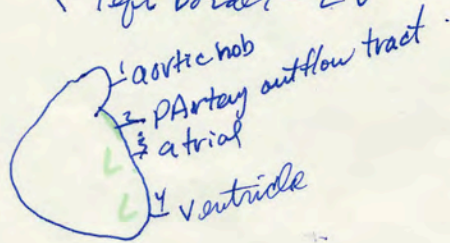 left border
1 aortic nob
2 PArtery outflow tract
3 atrial
L
L
4 ventricle